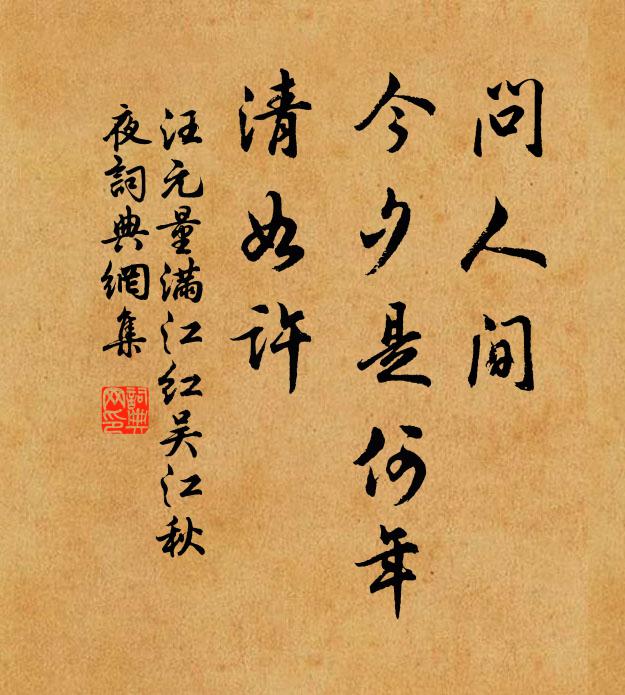 問人間
今夕是何年
清如許
汪元量滿江紅吴江秋
夜詞典網集
詞典
网印